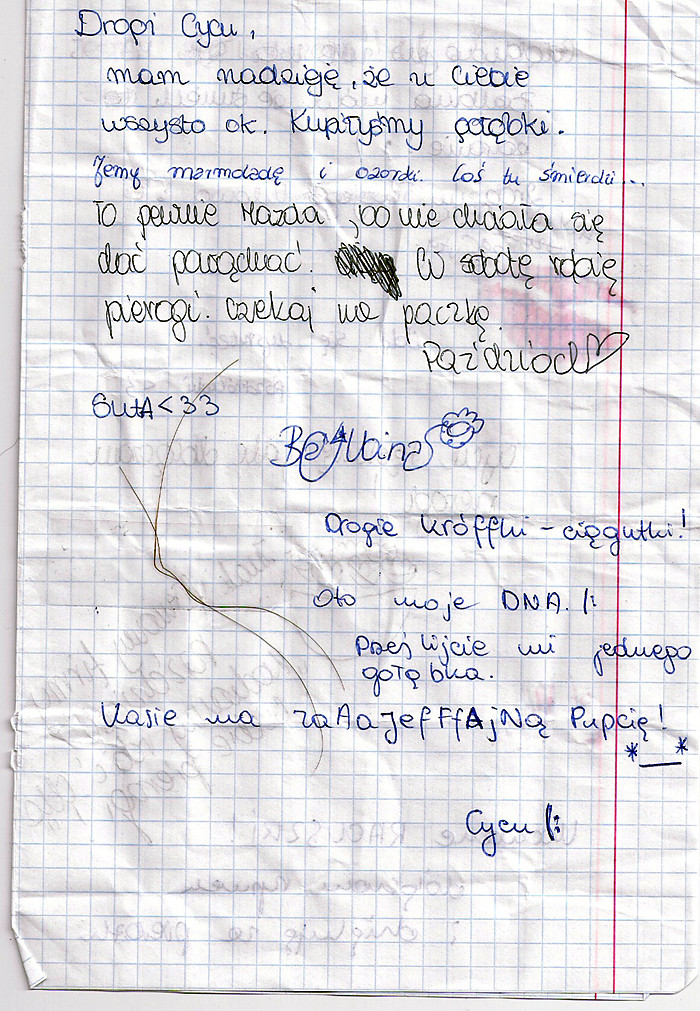 Dropi Cycu,
mam nadzieję, że u Ciebie
wszysto ok. Kupiłyśmy gołąbki.
Jemy marmoladę i ozorki. Coś tu śmierdzi...
To pewnie Mazda, bo nie chciała się
dać porąchać. W sobotę robię
pierogi. Czekaj na paczkę.
Paździoch
SutA<33
Drogie króffki - ciągutki!
Oto moje DNA. (:
Prześlijcie mi jednego
gołąbka.
Kasie ma zaAaJefFfAjNą Pupcię!
*__*
Cycu (: